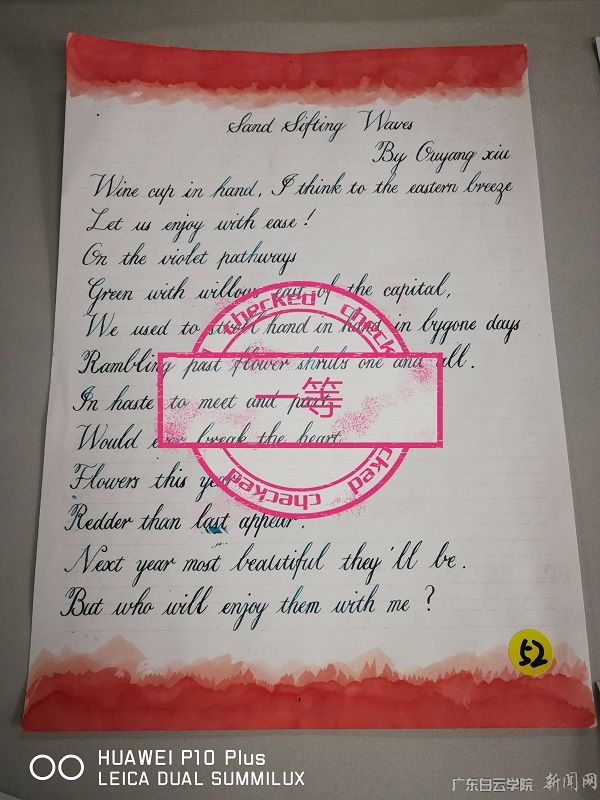 Sand Sifting Waves
By Ouyang xiu
Wine cup in hand, I think to the eastern breeze
Let us enjoy with ease!
On the violet pathways
Green with willows east of the capital,
We used to stroll hand in hand in bygone days
Rambling past flower shrubs one and all.
In haste to meet and part
Would ever break the heart.
Flowers this year
Redder than last appear.
Next year most beautiful they'll be.
But who will enjoy them with me?
checked check
一等
checked checked
52
HUAWEI P10 Plus
LEICA DUAL SUMMILUX
广东白云学院 新闻网